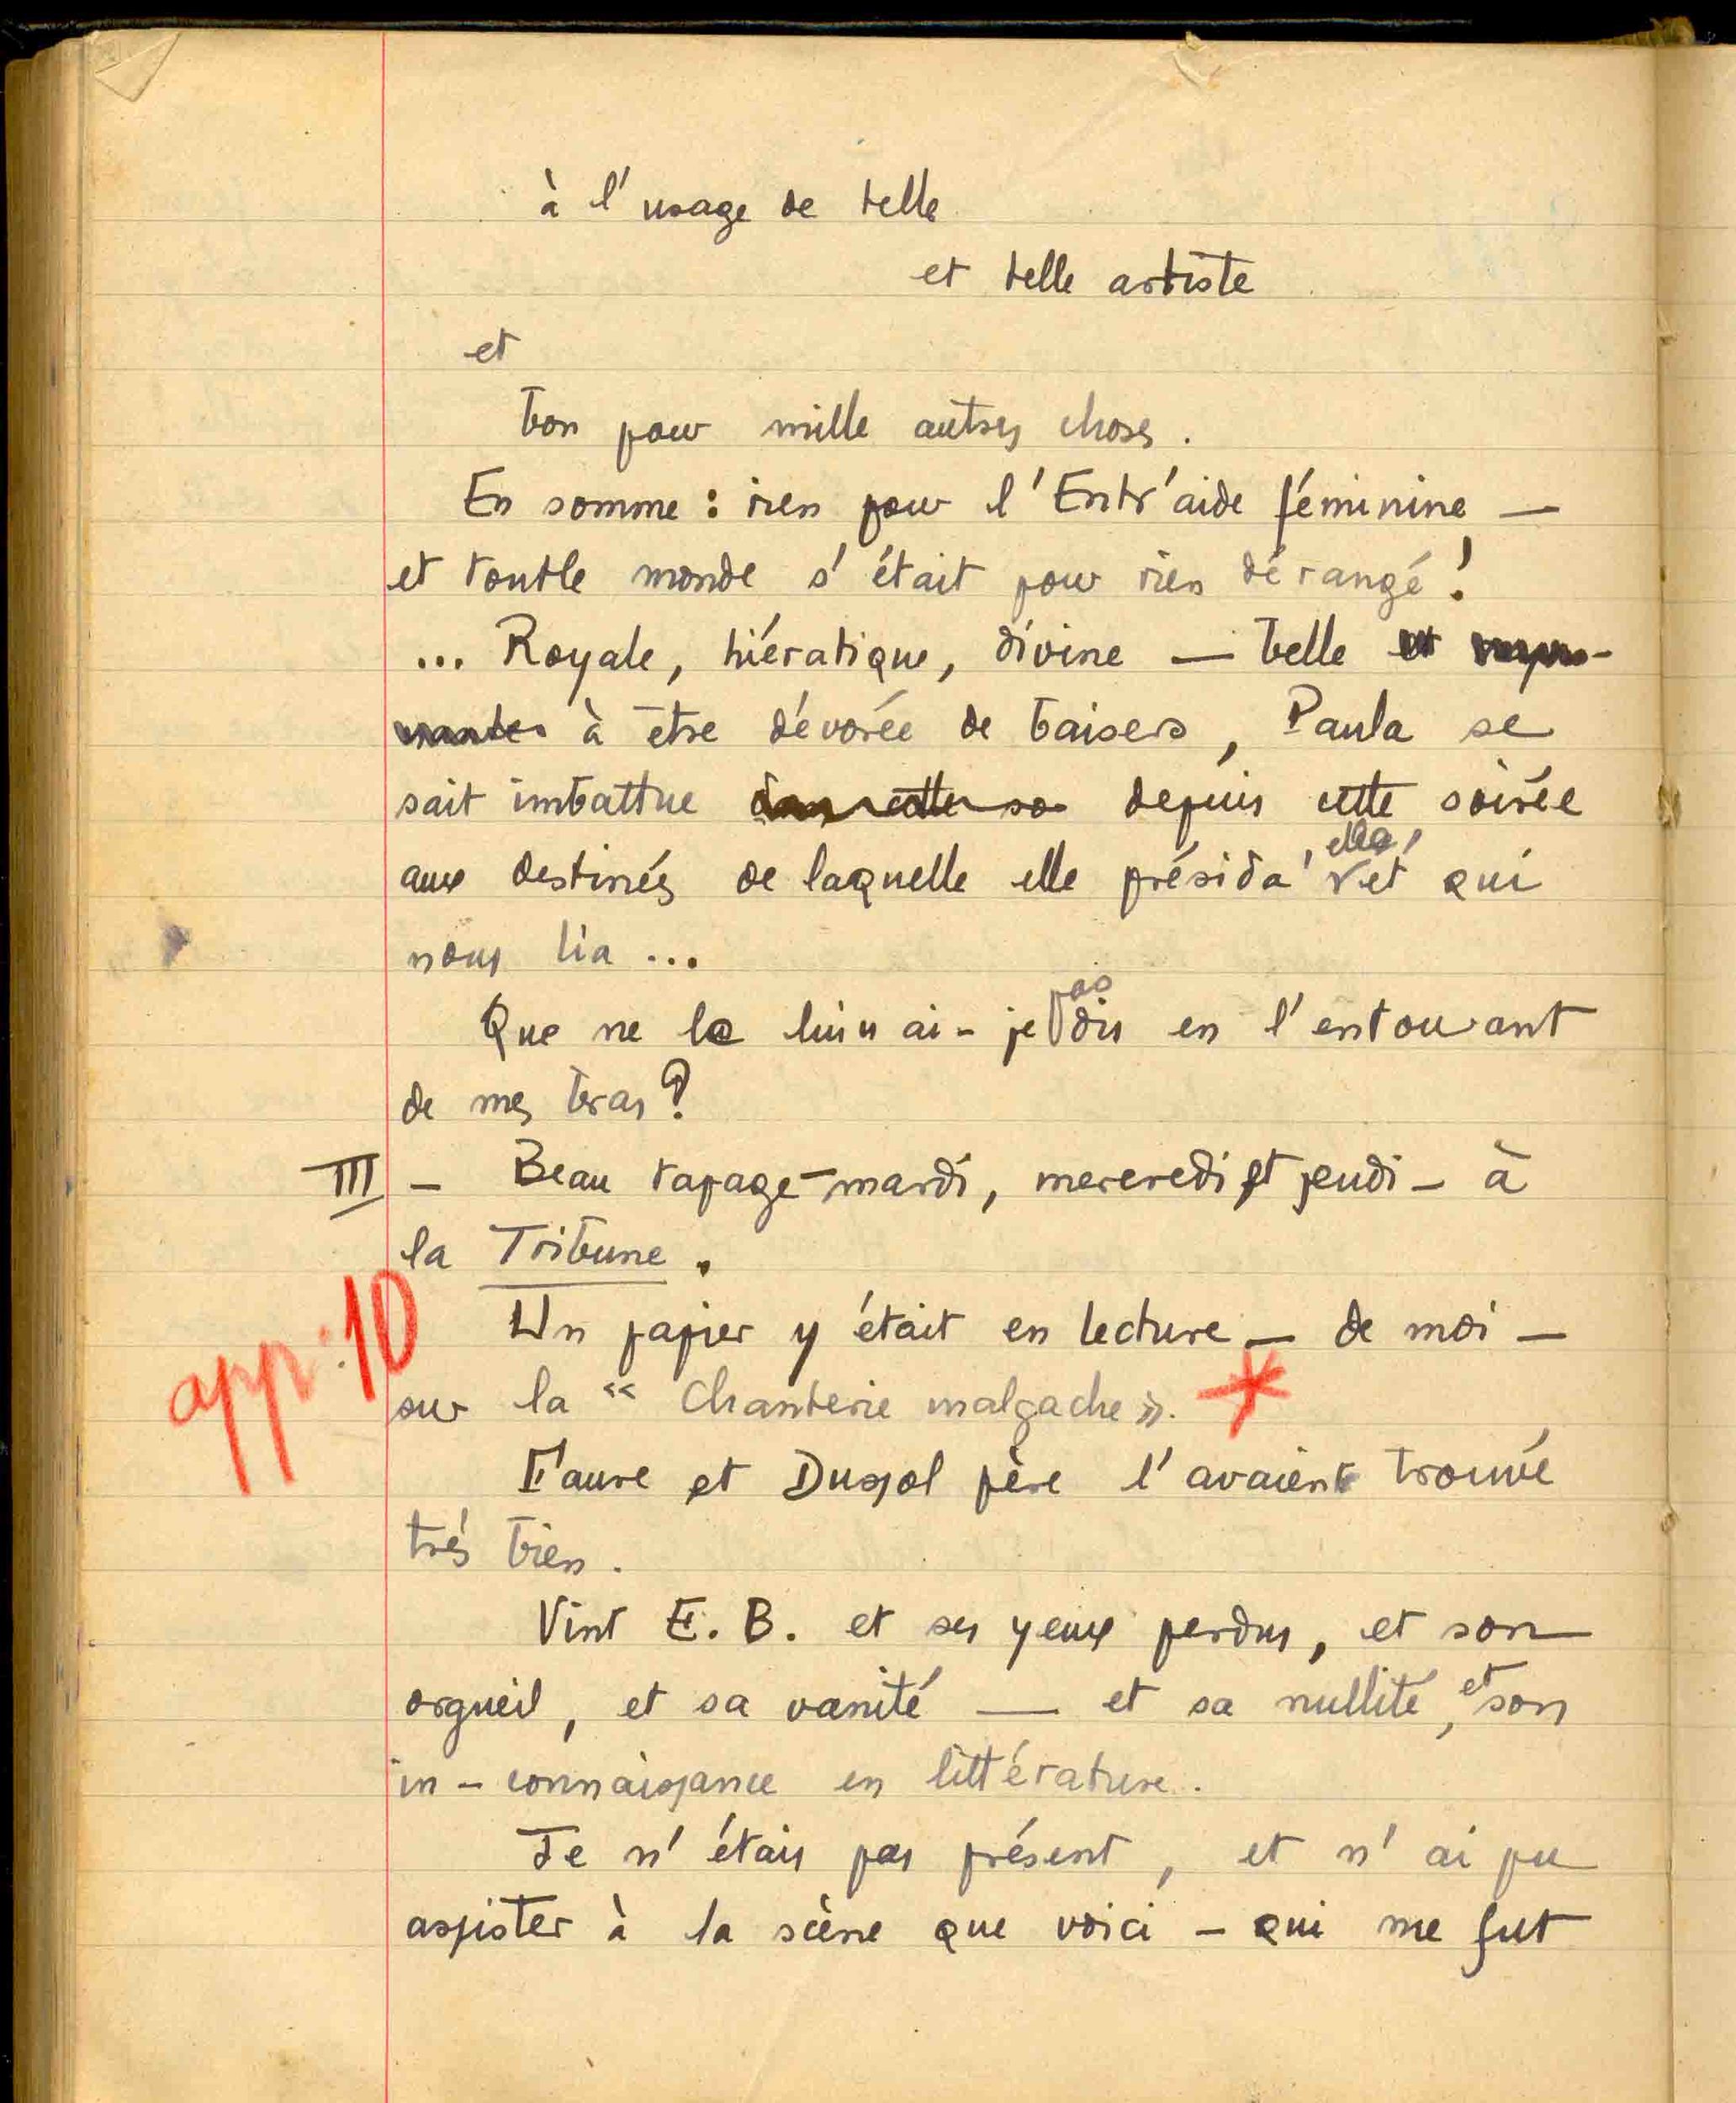 à l'usage de telle
et telle artiste
et
bon pour mille autres choses.
En somme : rien pour l'Entr'aide féminine —
et tout le monde s'était pour rien dérangé !
... Royale, hiératique, divine — belle et
à être dévorée de baisers, Paula se
sait imbattue dans cette so depuis cette soirée
aux destinés de laquelle elle présida, elle, et qui
nous lia ...
Que ne le lui ai-je pas dis en l'entourant
de mes bras ?
III — Beau tapage — mardi, mercredi et jeudi — à
la Tribune.
app: 10
Un papier y était en lecture — de moi —
sur la « Chanterie malgache ». *
Faure et Dussol père l'avaient trouvé
trés bien.
Vint E. B. et ses yeux perdus, et son
orgueil, et sa vanité — et sa nullité, et son
in-connaissance en littérature.
Je n'étais pas présent, et n'ai pu
assister à la scène que voici — qui me fut